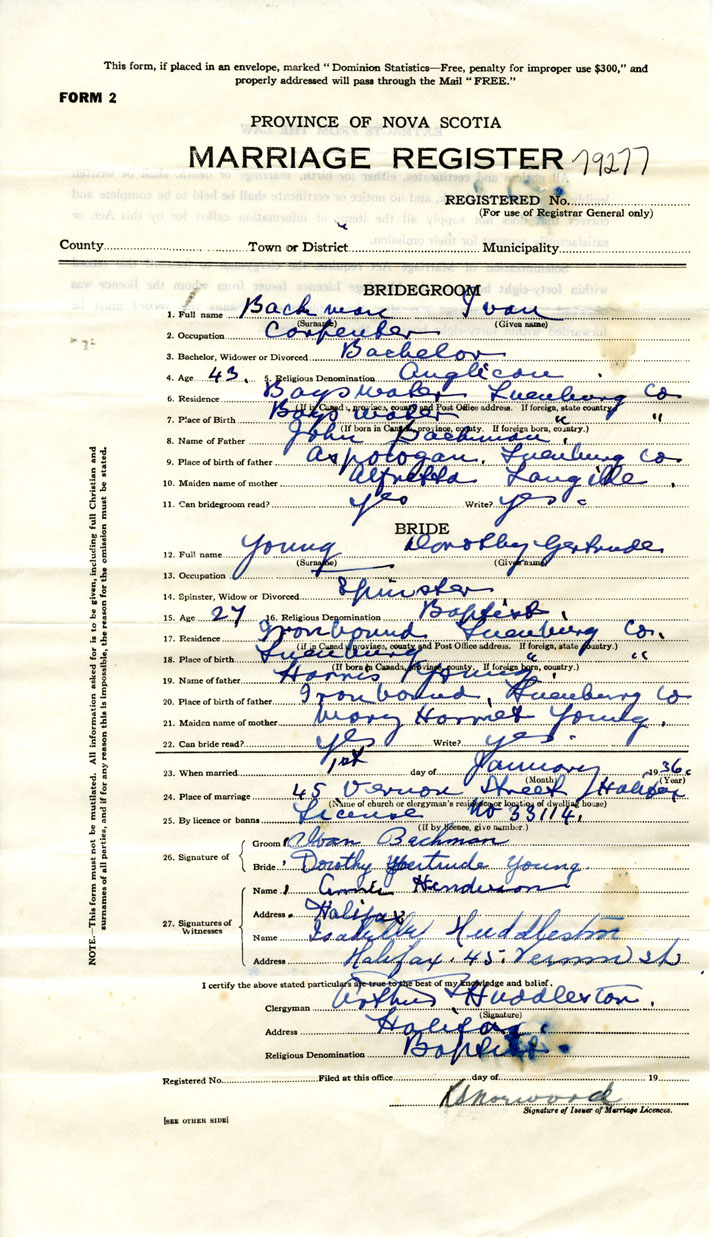 This form, if placed in an envelope, marked "Dominion Statistics—Free, penalty for improper use $300," and
properly addressed will pass through the Mail "FREE."
FORM 2
PROVINCE OF NOVA SCOTIA
MARRIAGE REGISTER 79277
REGISTERED No.
(For use of Registrar General only)
County Town or District Municipality
BRIDEGROOM
1. Full name Bachman Ivan
(Surname) (Given name)
2. Occupation Carpenter
3. Bachelor, Widower or Divorced Bachelor
4. Age 43. 5. Religious Denomination Anglican
6. Residence Bayswater Lunenburg Co
(If in Canada, province, county and Post Office address. If foreign, state country.)
7. Place of Birth Bayswater " "
(If born in Canada, province, county. If foreign born, country.)
8. Name of Father John Bachman.
9. Place of birth of father Aspotogan, Lunenburg Co
10. Maiden name of mother Alfretta Langille.
11. Can bridegroom read? yes Write? yes
BRIDE
12. Full name Young Dorothy Gertrude
(Surname) (Given name)
13. Occupation
14. Spinster, Widow or Divorced Spinster
15. Age 27 16. Religious Denomination Baptist.
17. Residence Ironbound Lunenburg Co.
(if in Canada, province, county and Post Office address. If foreign, state country.)
18. Place of birth Lunenburg " "
(If born in Canada, province, county. If foreign born, country.)
19. Name of father Harris Young.
20. Place of birth of father Ironbound, Lunenburg Co
21. Maiden name of mother Mary Harriet Young.
22. Can bride read? yes Write? yes.
23. When married 1st day of January 1936.
(Month) (Year)
24. Place of marriage 45 Vernon Street Halifax
(Name of church or clergyman's residence or location of dwelling house)
25. By licence or banns License No 33114.
(If by licence, give number.)
26. Signature of
Groom Ivan Bachman
Bride Dorothy Gertrude Young.
27. Signatures of Witnesses
Name Annie Henderson
Address Halifax
Name Isabella Huddleston
Address Halifax. 45. Vernon St
I certify the above stated particulars are true to the best of my knowledge and belief.
Clergyman Arthur Huddleston.
(Signature)
Address Halifax.
Religious Denomination Baptist.
Registered No. Filed at this office day of 19
Norwood
Signature of Issuer of Marriage Licences.
[SEE OTHER SIDE]
NOTE.—This form must not be mutilated. All information asked for is to be given, including full Christian and
surnames of all parties, and if for any reason this is impossible, the reason for the omission must be stated.